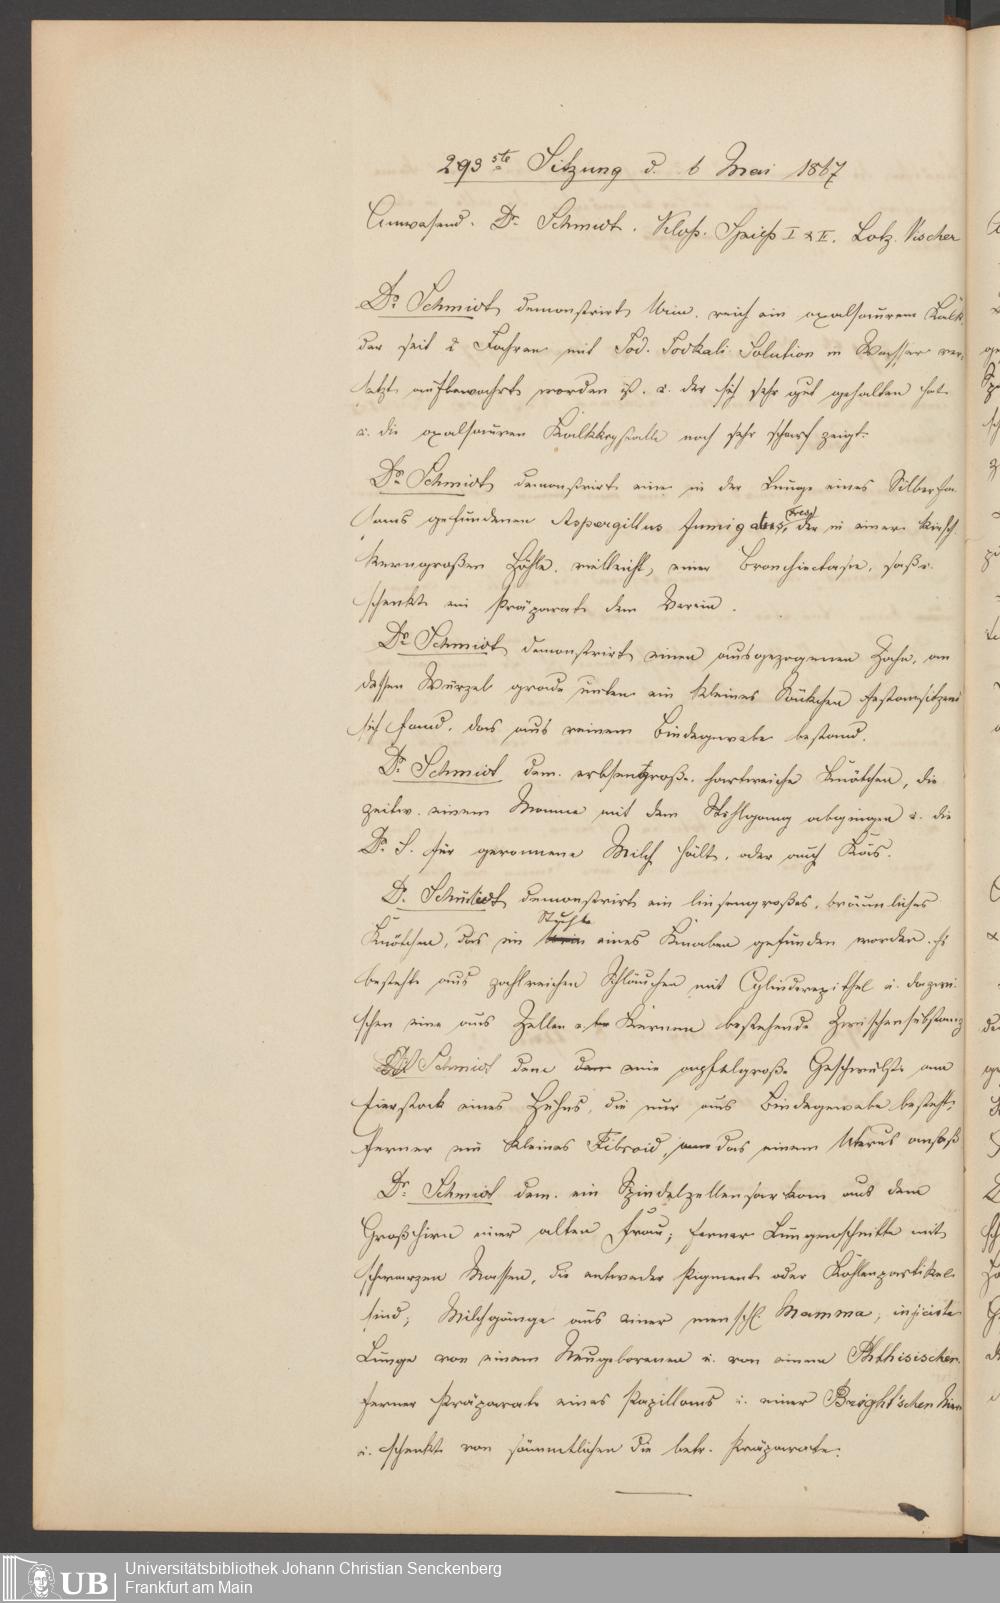 293ste Sitzung d. 6 Mai 1867
Anwesend. Dr. Schmidt. Kloß. Spieß I & II. Lotz. Vischer
Dr. Schmidt demonstrirt Urin, reich an oxalsaurem Kalk,
der seit 2 Jahren mit Jod. Jodkali Solution in Wasser ver-
setzt aufbewahrt worden ist. u. der sich sehr gut gehalten hat
u. die oxalsauren Kalkkrystalle noch sehr scharf zeigt.
Dr. Schmidt demonstrirt einen in der Lunge eines Silberfa-
sans gefundenen Aspergillus fumigatus, der in einer kirsch-
kerngroßen Höhle, vielleicht, einer Bronchiectasie, saß u.
schenkt ein Präparat dem Verein.
Dr. Schmidt demonstrirt einen ausgezogenen Zahn, an
dessen Wurzel grade unten ein kleines festansitzend
sich fand, das aus reinem Bindegewebe bestand.
Dr. Schmidt dem. erbsengroße hartweiche Knötchen, die
zeitw. einem Manne mit dem Stuhlgang abgingen u. die
Dr. S. für geronnene Milch hält, oder auch Käs.
Dr. Schmidt demonstrirt ein linsengroßes, bräunliches
Knötchen, das im Stuhl eines Knaben gefunden worden. Es
besteht aus zahlreichen Schläuchen mit Cylinderepithel u. dazwi-
schen eine aus Zellen u. Kernen bestehende Zwischensubstanz
Dr Schmidt dem eine apfelgroße Geschwulst am
Eierstock eines Huhns, die nur aus Bindegewebe besteht,
ferner ein kleines Fibroid, das einem Uterus ansaß
Dr. Schmidt dem. ein Spindelzellensarkom aus dem
Großhirn einer alten Frau; ferner Lungenschnitte mit
schwarzen Massen, die entweder Pigment oder Kohlenpartikel
sind; Milchgänge aus einer menschl. Mamma; injicirte
Lunge von einem Neugeborenen u. von einem Phthisischen,
ferner Präparate eines Papilloms u. einer Bright'schen Niere
u. schenkt von sämmtlichen die betr. Präparate.
Universitätsbibliothek Johann Christian Senckenberg
Frankfurt am Main
UB